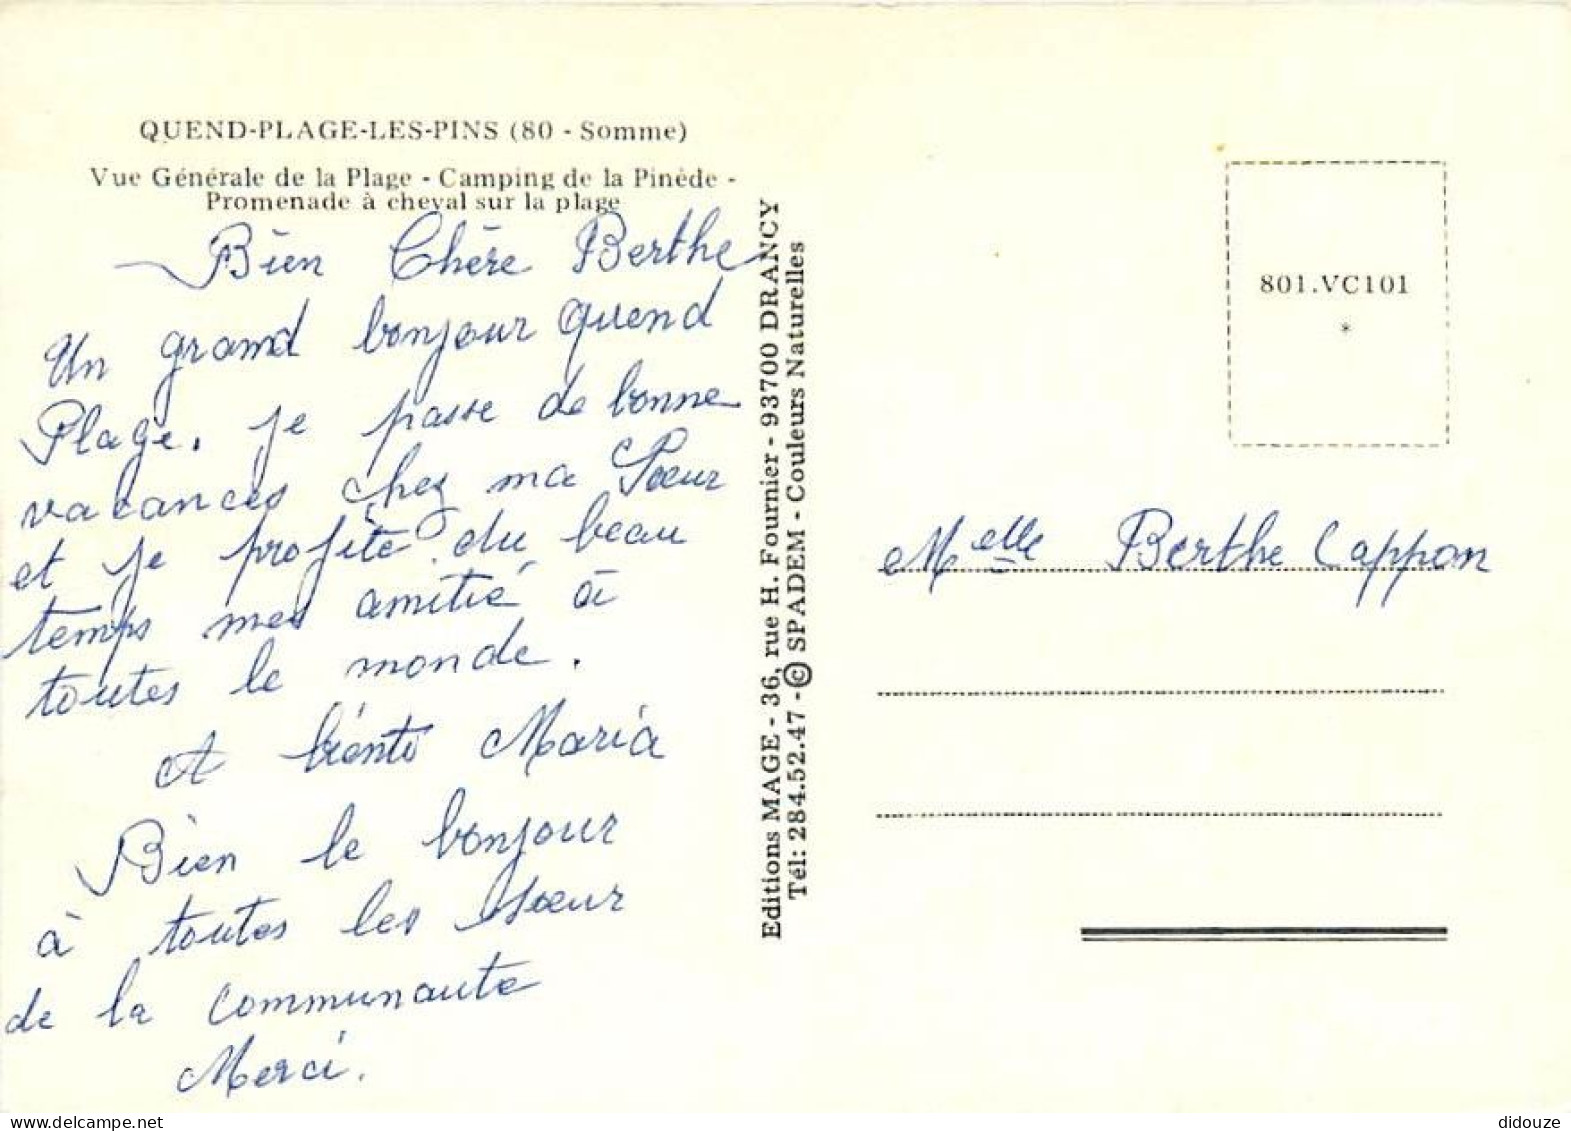 QUEND-PLAGE-LES-PINS (80 - Somme)
Vue Générale de la Plage - Camping de la Pinède -
Promenade à cheval sur la plage
Bien Chère Berthe
Un grand bonjour quend
Plage. je passe de bonne
vacances chez ma Sœur
et je profite du beau
temps mes amitié à
toutes le monde.
A bientó Maria
Bien le bonjour
à toutes les sœur
de la communaute
Merci.
Editions MAGE - 36, rue H. Fournier - 93700 DRANCY
Tél: 284.52.47 - © SPADEM - Couleurs Naturelles
801.VC101
*
Melle Berthe Cappon
didouze